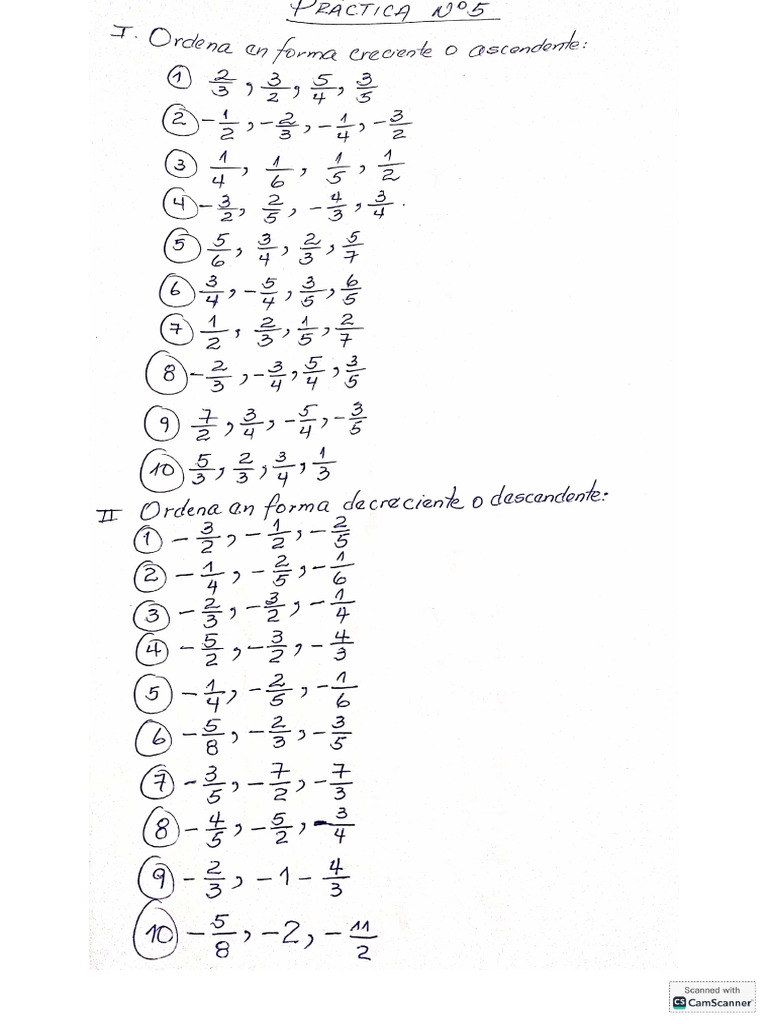 PRÁCTICA Nº5
I. Ordena en forma creciente o ascendente:
① 2/3, 3/2, 5/4, 3/5
② -1/2, -2/3, -1/4, -3/2
③ 1/4, 1/6, 1/5, 1/2
④ -3/2, 2/5, -4/3, 3/4.
⑤ 5/6, 3/4, 2/3, 5/7
⑥ 3/4, -5/4, 3/5, 6/5
⑦ 1/2, 2/3, 1/5, 2/7
⑧ -2/3, -3/4, 5/4, 3/5
⑨ 7/2, 3/4, -5/4, -3/5
⑩ 5/3, 2/3, 3/4, 1/3
II Ordena en forma decreciente o descendente:
① -3/2, -1/2, -2/5
② -1/4, -2/5, -1/6
③ -2/3, -3/2, -1/4
④ -5/2, -3/2, -4/3
⑤ -1/4, -2/5, -1/6
⑥ -5/8, -2/3, -3/5
⑦ -3/5, -7/2, -7/3
⑧ -4/5, -5/2, -3/4
⑨ -2/3, -1 -4/3
⑩ -5/8, -2, -11/2
Scanned with
CS CamScanner